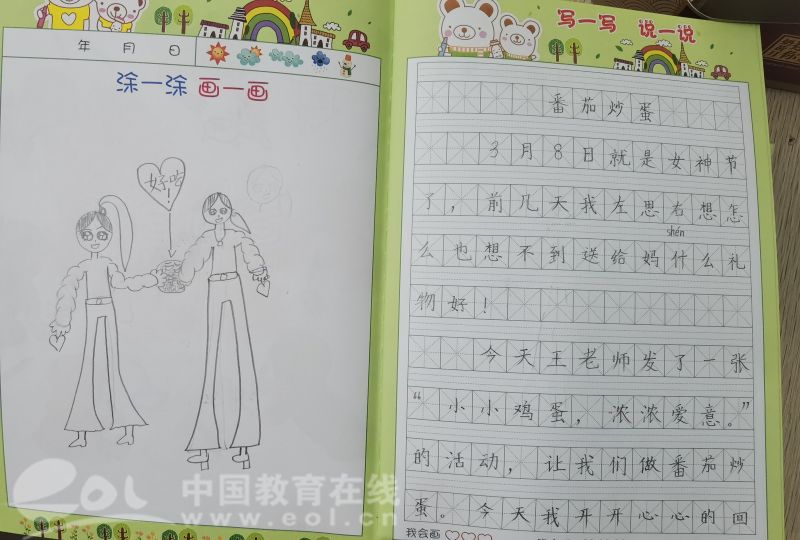 年 月 日
涂一涂 画一画
好吃!
写一写 说一说
番茄炒蛋
3月8日就是女神节
了，前几天我左思右想怎
shén
么也想不到送给妈什么礼
物好！
今天王老师发了一张
“小小鸡蛋，浓浓爱意。”
的活动，让我们做番茄炒
蛋。今天我开开心心的回
我会画
eol 中国教育在线
www.eol.cn